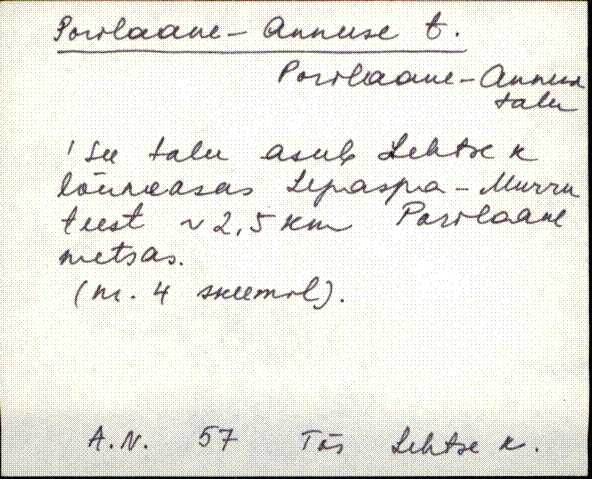 Porilaane-Annuse t.
Porilaane-Annuse
talu
See talu asub Lehtse k
lõunaosas Lepaspea-Murru
teest ~2,5 km Porilaane
metsas.
(nr. 4 skeemil).
A.N. 57 Lehtse k.